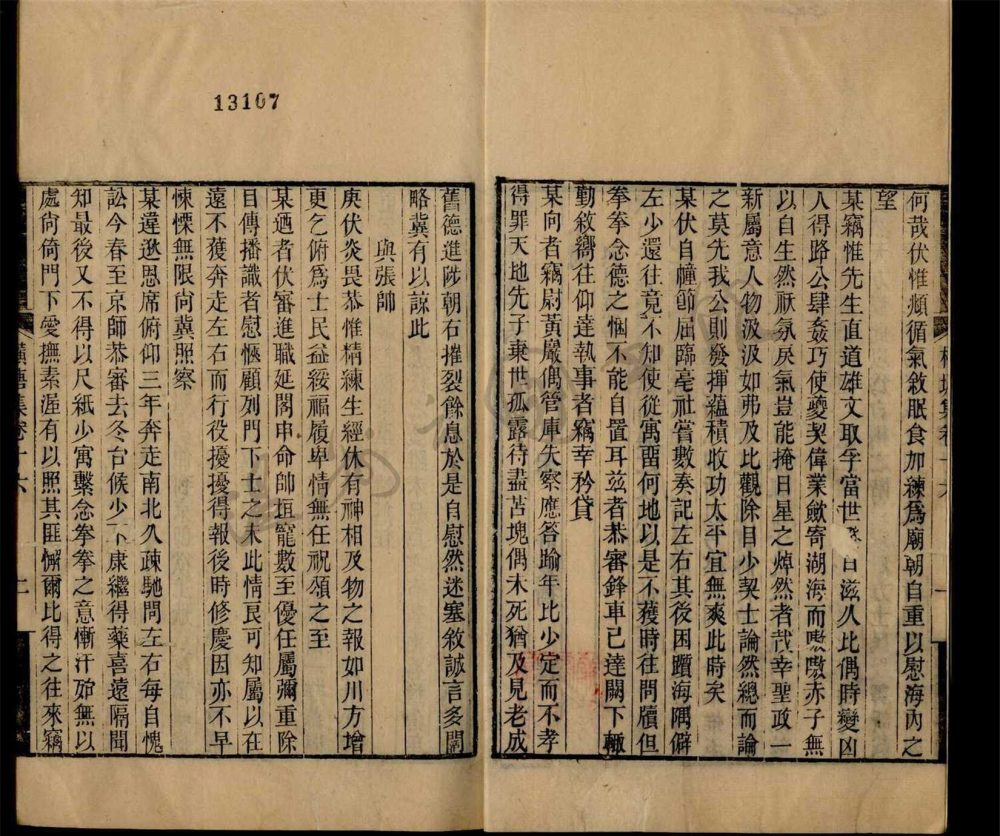 何哉伏惟頫循氣敘眠食加練爲廟朝自重以慰海內之
望
某竊惟先生直道雄文取孚當世日滋久比偶時變凶
人得路公肆姦巧使夔契偉業斂寄湖海而嗷嗷赤子無
以自生然祅氛戾氣豈能掩日星之焯然者哉幸聖政一
新屬意人物汲汲如弗及比觀除目少契士論然總而論
之莫先我公則發揮蘊積收功太平宜無爽此時矣
某伏自幢節屆臨亳社嘗數奏記左右其後困躓海隅僻
左少還往竟不知使從寓畱何地以是不獲時往問牘但
拳拳念德之悃不能自置耳兹者恭審鋒車已達闕下輙
勤敘嚮往仰達執事者竊幸矜貸
某向者竊尉黃巖偶管庫失察應答踰年比少定而不孝
得罪天地先子棄世孤露待盡苫塊偶未死猶及見老成
舊德進陟朝右摧裂餘息於是自慰然迷塞敘誠言多闊
略冀有以諒此
與張帥
庚伏炎畏恭惟精練生經休有神相及物之報如川方增
更乞俯爲士民益綏福履卑情無任祝頌之至
某迺者伏審進職延閣申命帥垣寵數至優任屬彌重除
目傳播識者慰愜顧列門下士之末此情良可知屬以在
遠不獲奔走左右而行役擾擾得報後時修慶因亦不早
悚慄無限尙冀照察
某違遜恩席俯仰三年奔走南北久疎馳問左右每自愧
訟今春至京師恭審去冬台候少不康繼得藥喜遠隔聞
知最後又不得以尺紙少寓繫念拳拳之意慚汗茆無以
處尙倚門下愛撫素渥有以照其匪懈爾比得之往來竊
橫塘集卷十六
13107